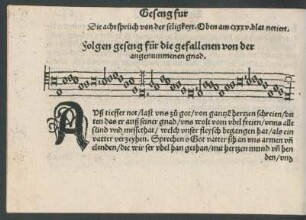 Geseng fur
Die acht sprüch von der seligkeyt. Oben am cxxxv. blat notiert.
Folgen geseng für die gefallenen von der
angenummenen gnad.
AVß tieffer not/ laſt vns zů got/ von gantzē hertzen schreien/ bit
ten das er auß seiner gnad/ vns wolt vom vbel freien/ vnnd alle
sünd vnd missethat/ welch vnser fleysch begangen hat/ als ein
vatter verzeyhen. Sprechen o Got vatter sih an vns armen vñ
elenden/ die wir ser vbel han gethan/ mit hertzen mund vñ hen
den/ vns